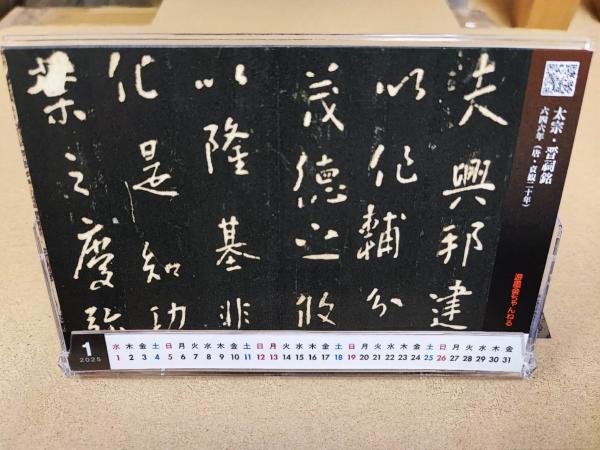 太宗・晋祠銘
六四六年（唐・貞観二十年）
游墨舎ちゃんねる
夫興邦建
以作輔分
茂德之攸
以隆基非
化是知功
葉之慶弥
1
2025
水 木 金 土 日 月 火 水 木 金 土 日 月 火 水 木 金 土 日 月 火 水 木 金 土 日 月 火 水 木 金
1 2 3 4 5 6 7 8 9 10 11 12 13 14 15 16 17 18 19 20 21 22 23 24 25 26 27 28 29 30 31